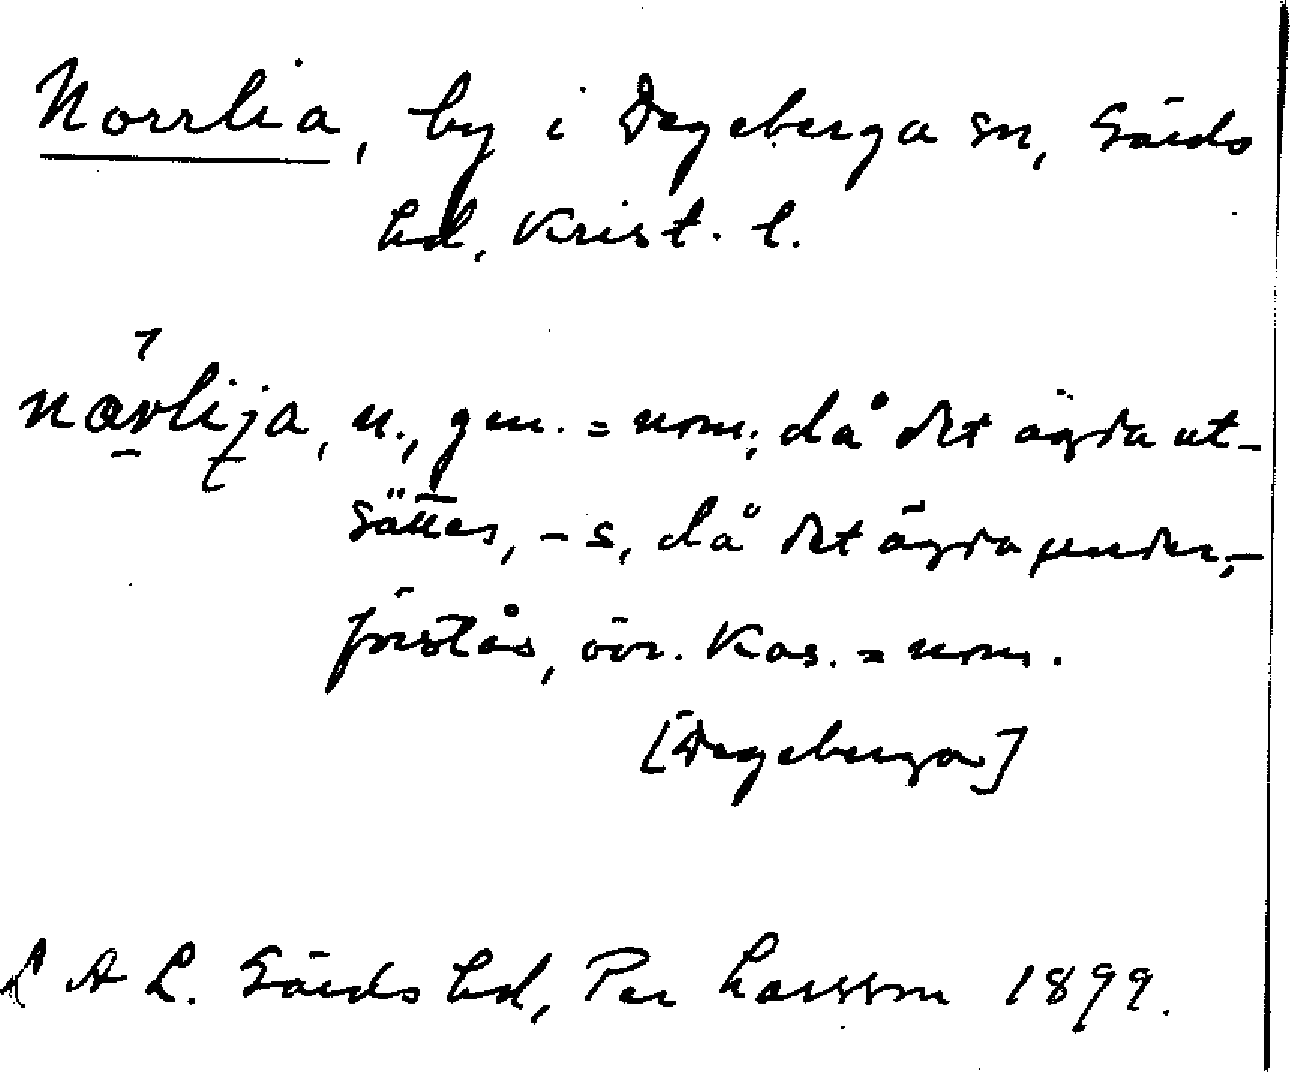 Norrlia, by i Degeberga sn, Gärds
hd, Krist. l.
nörlija, n., gen. = nom; då det ägda ut-
sättes, -s, då det ägda under-
förstås, övr. Kas. = nom.
[Degeberga]
L A L. Gärds hd, Per Larsson 1899.